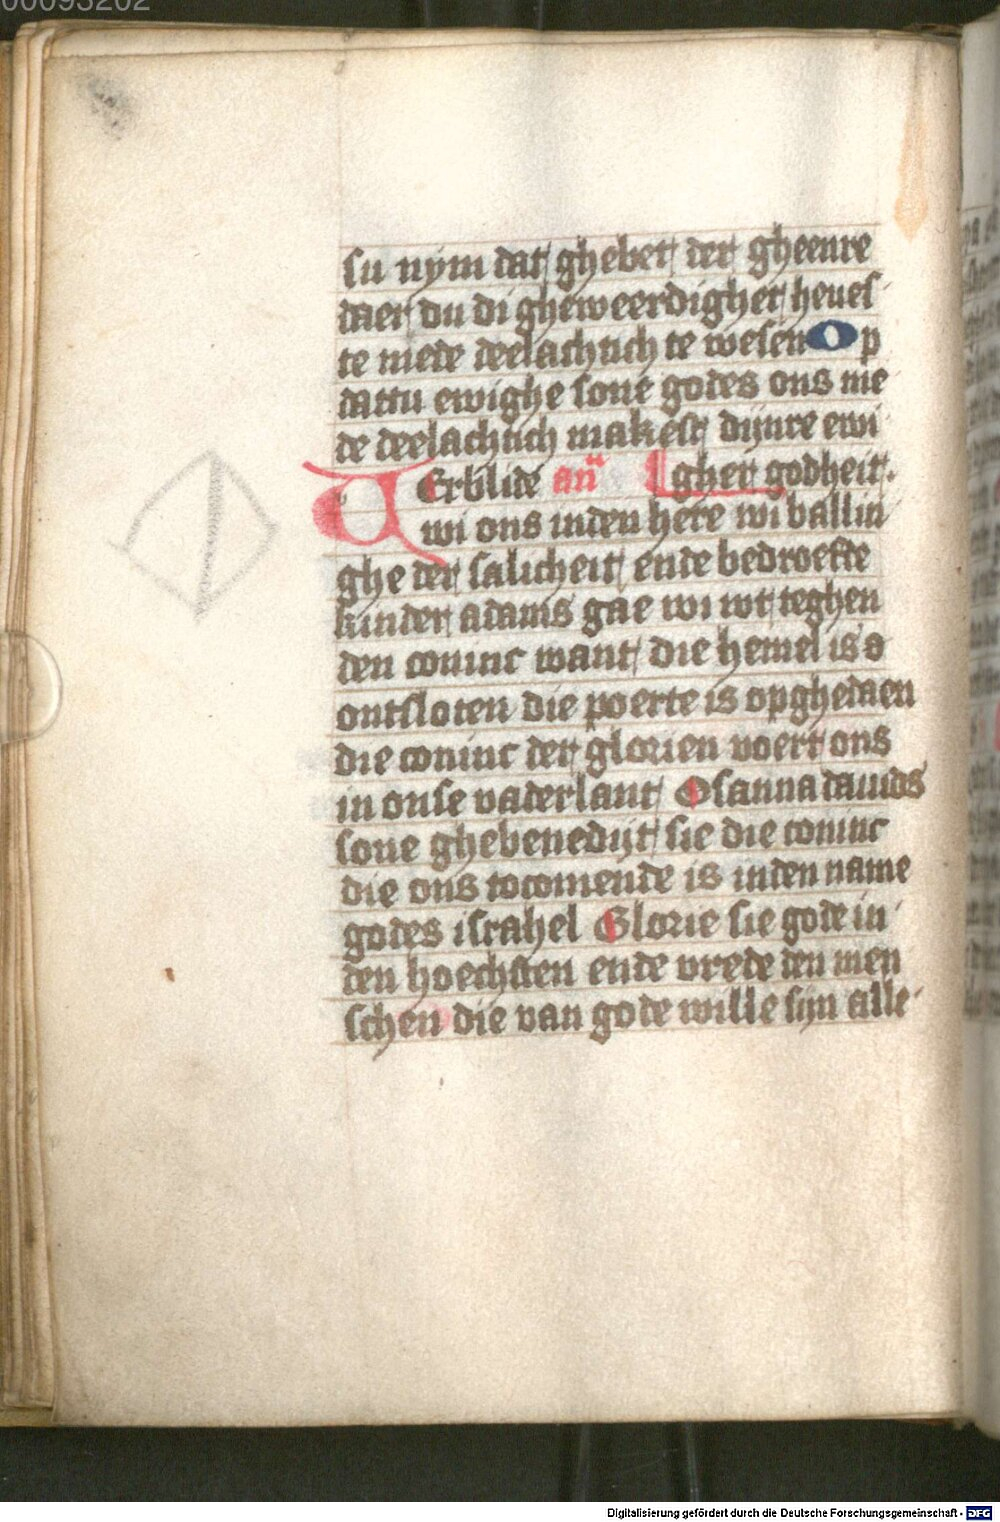 00093202
su nym dat ghebet der gheenre
daer du di gheweerdighet heues
te mede deelachtich te wesen Op
dattu ewighe sone godes ons me
de deelachtich makest dijnre ewi
VErblide añ gher godheit.
wi ons inden here wi ballin
ghe der salicheit ende bedroefde
kinder adams gae wi wt teghen
den coninc want die hemel is o
ontsloten die poerte is opghedaen
die coninc der glorien voert ons
in onse vaderlant Osanna dauids
sone ghebenedijt sie die coninc
die ons tocomende is inden name
godes israhel Glorie sie gode in
den hoechsten ende vrede den men
schen die van gode wille sijn alle
Digitalisierung gefördert durch die Deutsche Forschungsgemeinschaft - DFG